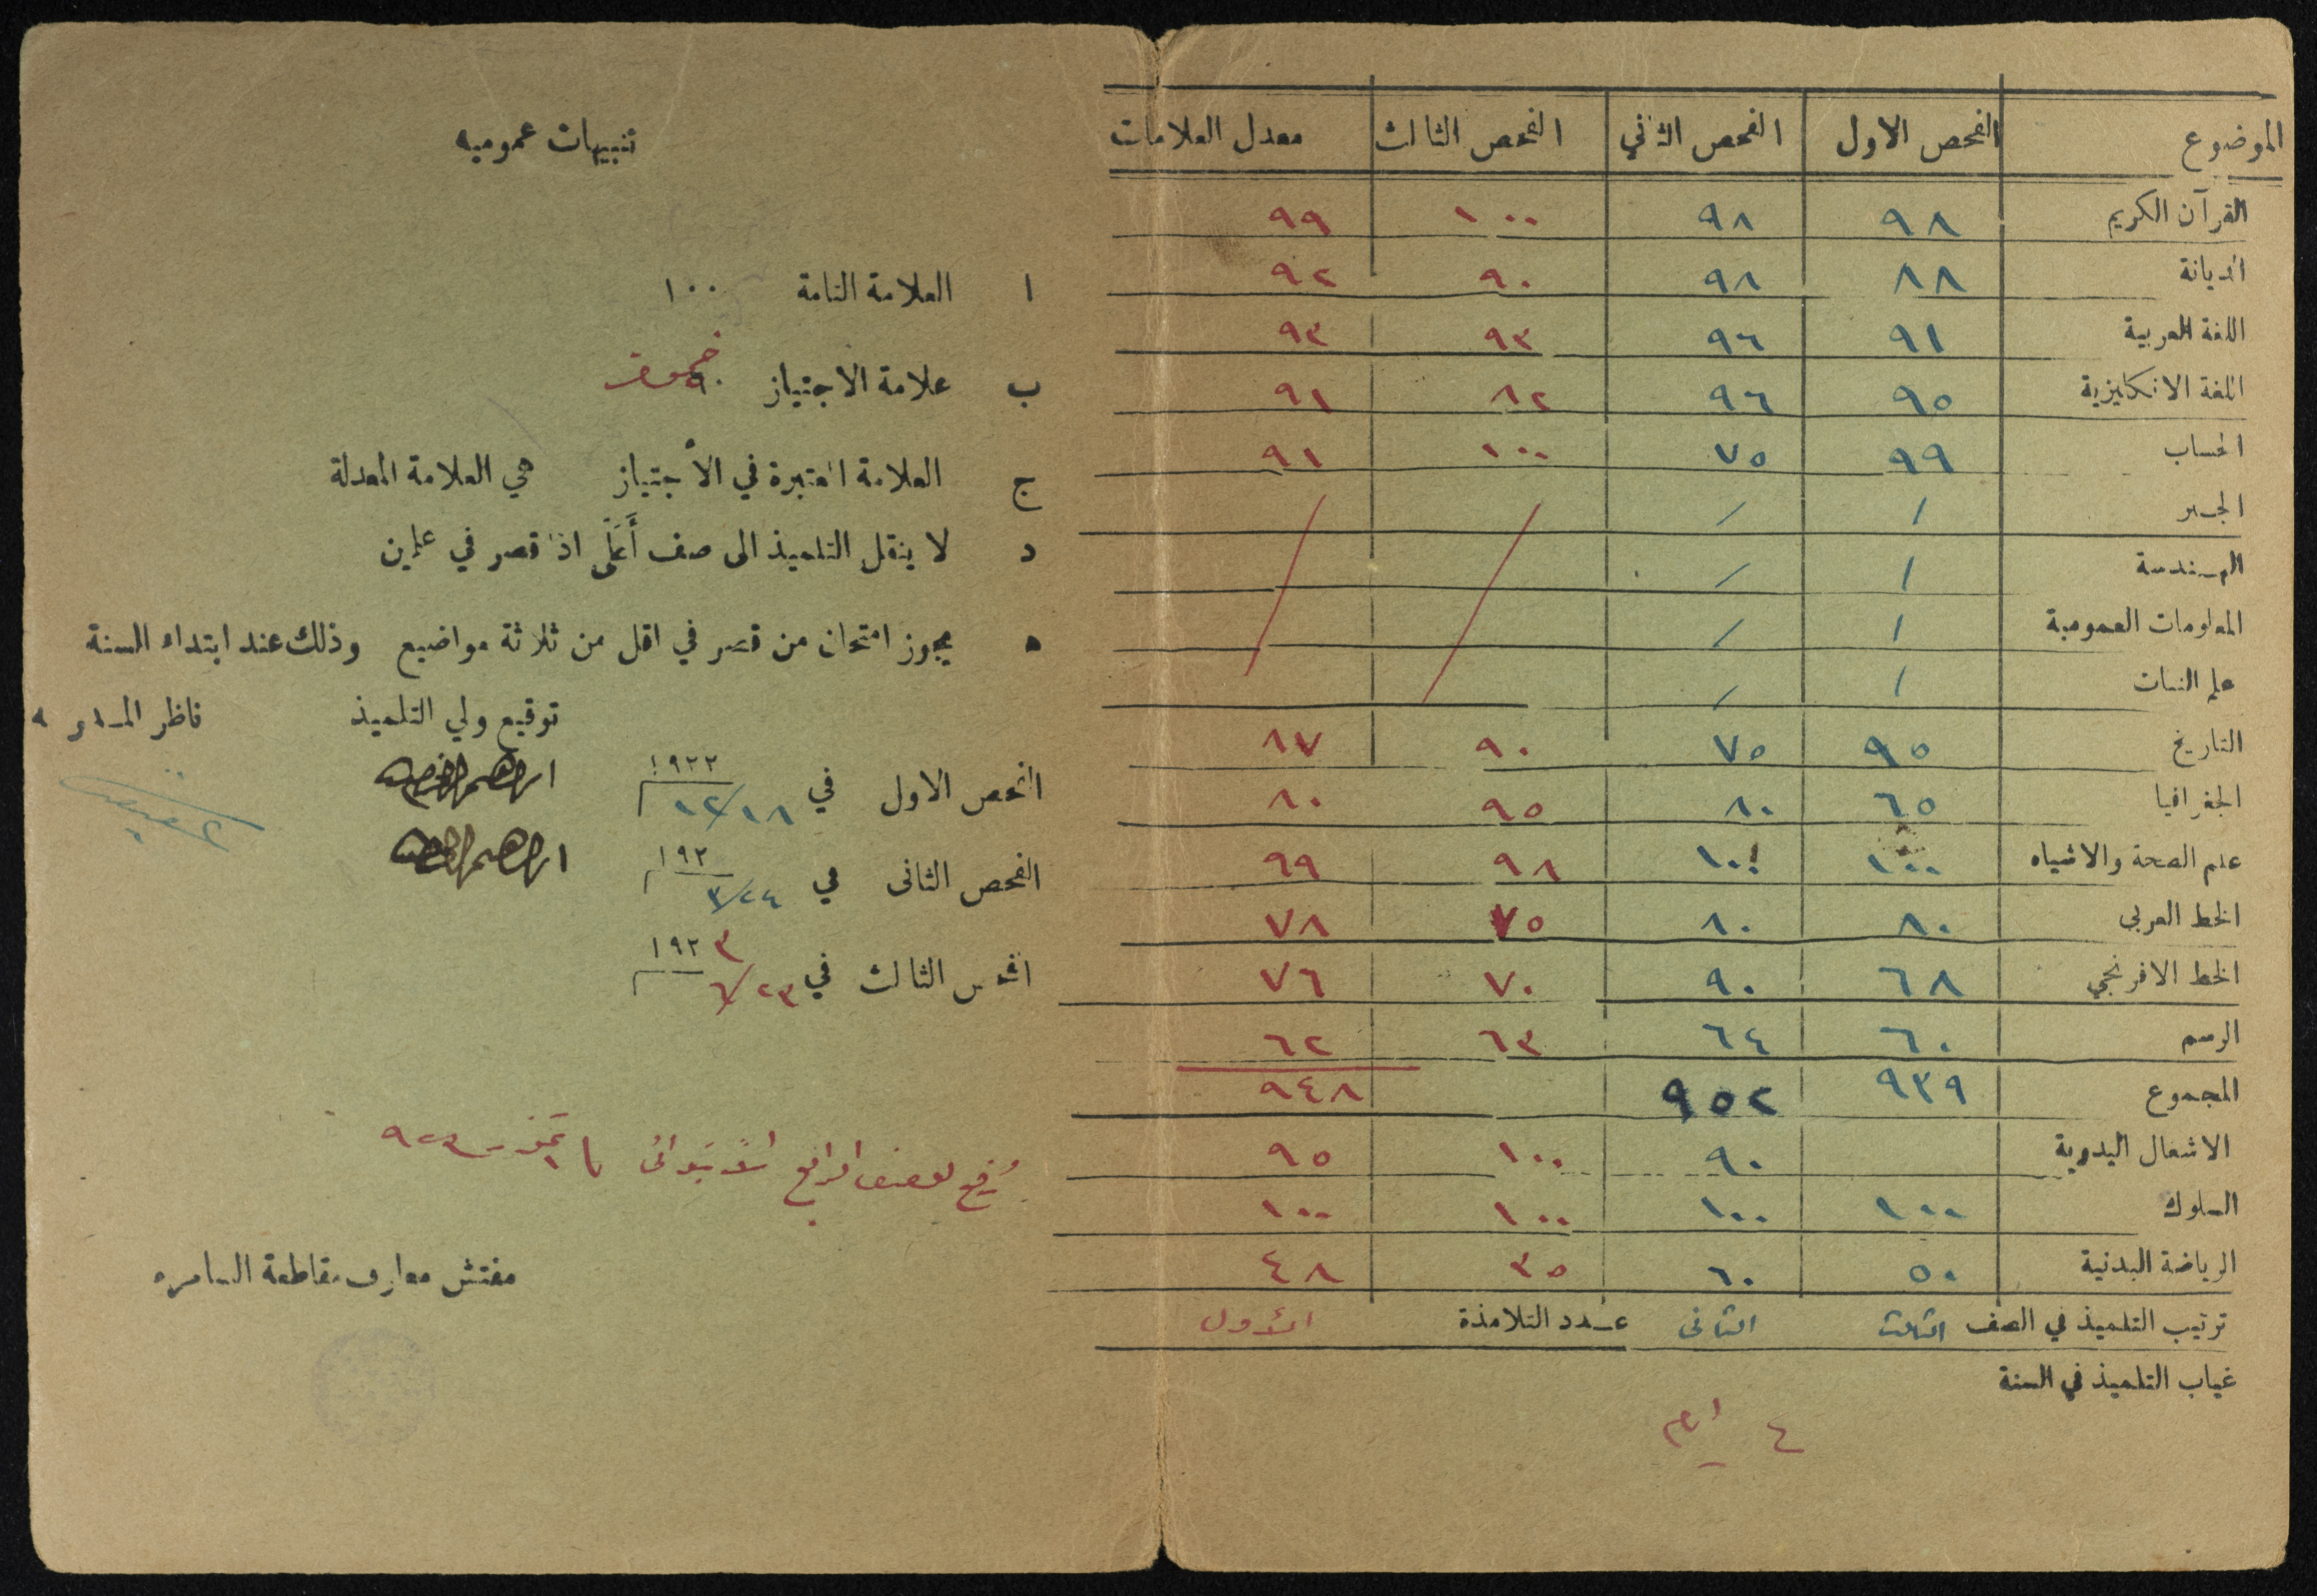 الموضوع الفحص الاول الفحص الثاني الفحص الثالث معدل العلامات
القرآن الكريم ٩٨ ٩٨ ١٠٠ ٩٩
الديانة ٨٨ ٩٨ ٩٠ ٩٢
اللغة العربية ٩١ ٩٦ ٩٣ ٩٣
اللغة الانكليزية ٩٥ ٩٦ ٨٢ ٩١
الحساب ٩٩ ٧٥ ١٠٠ ٩١
الجبر / /
الهندسة / /
المعلومات العمومية / /
علم النبات / /
التاريخ ٩٥ ٧٥ ٩٠ ٨٧
الجغرافيا ٦٥ ٨٠ ٩٥ ٨٠
علم الصحة والاشياء ١٠٠ ١٠٠ ٩٨ ٩٩
الخط العربي ٨٠ ٨٠ ٧٥ ٧٨
الخط الافرنجي ٦٨ ٩٠ ٧٠ ٧٦
الرسم ٦٠ ٦٤ ٦٣ ٦٢
المجموع ٩٣٩ ٩٥٢ ٩٤٨
الاشغال اليدوية ٩٠ ١٠٠ ٩٥
السلوك ١٠٠ ١٠٠ ١٠٠ ١٠٠
الرياضة البدنية ٥٠ ٦٠ ٣٥ ٤٨
ترتيب التلميذ في الصف الثالث الثاني عدد التلامذة الأول
غياب التلميذ في السنة
٤ ايام
تنبيهات عموميه
ا العلامة التامة ١٠٠
ب علامة الاجتياز خمسون
ج العلامة المعتبرة في الاجتياز هي العلامة المعدلة
د لا ينقل التلميذ الى صف أعلى اذا قصر في علمين
ه يجوز امتحان من قصر في اقل من ثلاثة مواضيع وذلك عند ابتداء السنة
توقيع ولي التلميذ ناظر المدرسة
الفحص الاول في ١٢/١٨ ١٩٢٢ ابراهيم
الفحص الثاني في ٣/٢٤ ١٩٢ ابراهيم
الفحص الثالث في ٦/٢٣ ١٩٢٣
رفع للصف الرابع الابتدائي تموز ٩٢٣
مفتش معارف مقاطعة السامره